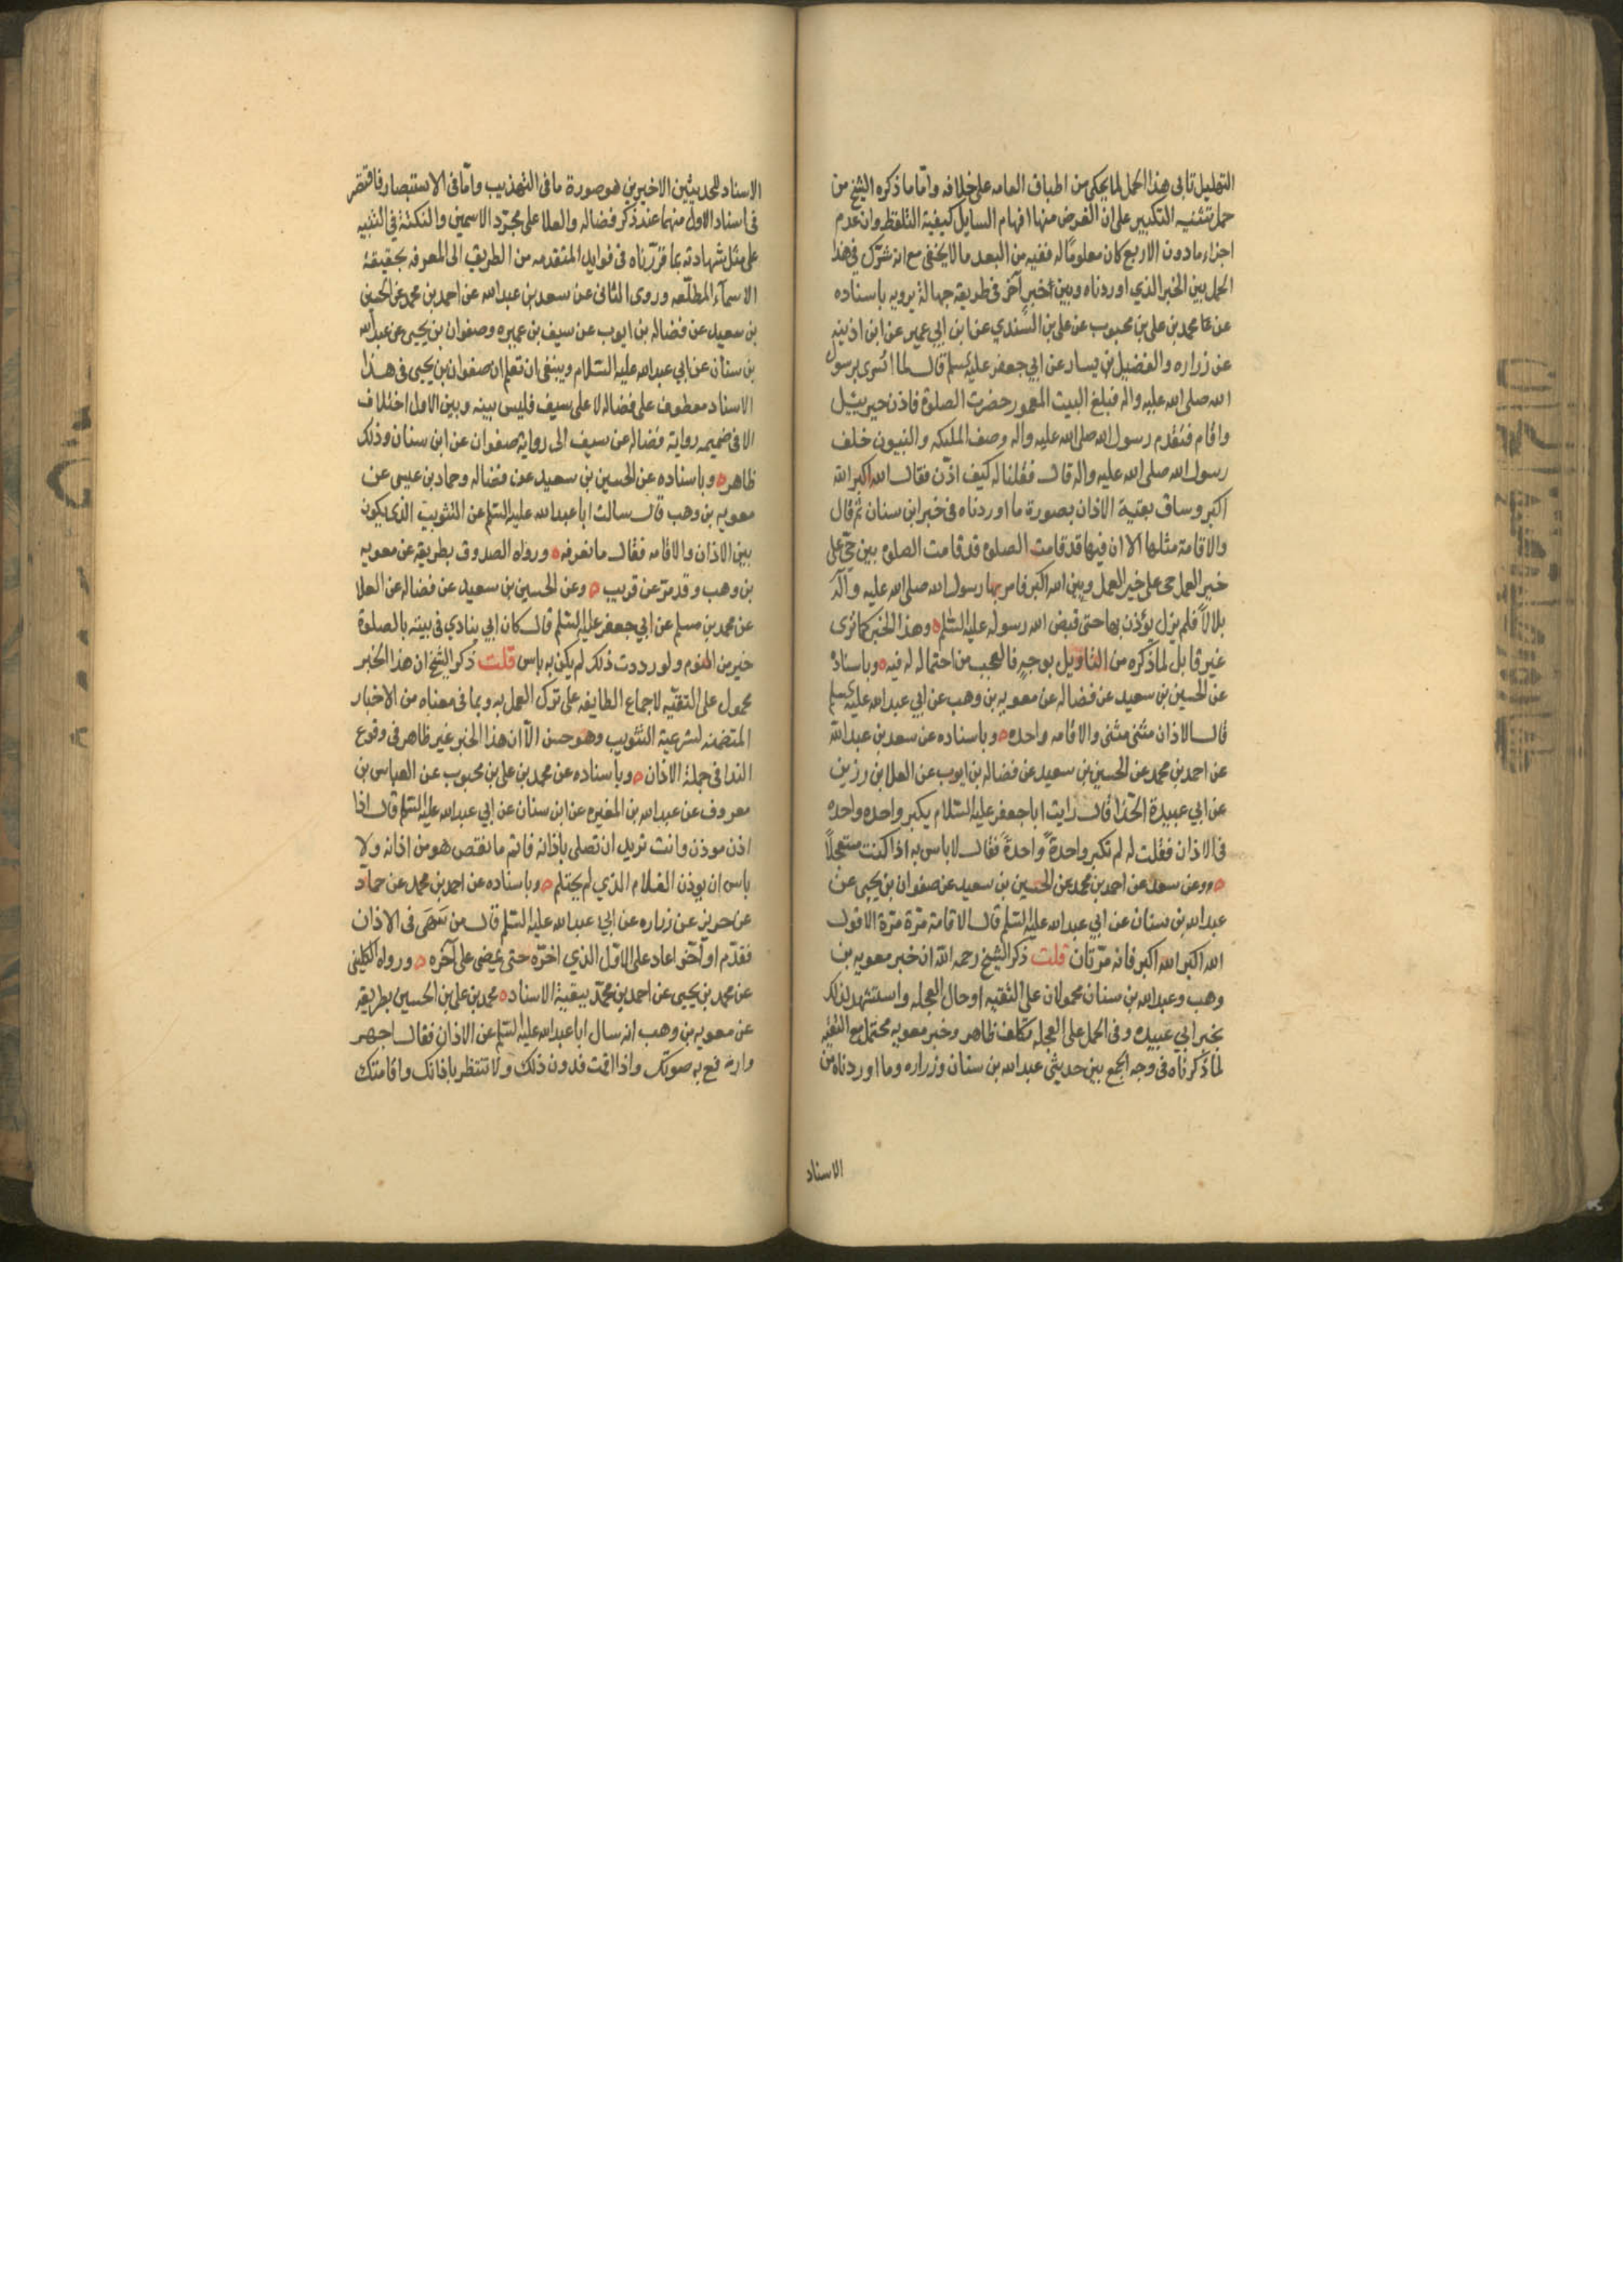 التهليل تابى هذا الحمل لما يحكى من اطباق العامه على خلافه واما ما ذكره الشيخ من
حمل تثنيه التكبير على ان الغرض منها افهام السايل كيفية التلفظ وان عدم
اجزاء ما دون الاربع كان معلومًا له ففيه من البعد ما لا يخفى مع انه شرّك في هذا
الحمل بين الخبر الذي اوردناه وبين خبر آخر في طريقه جهالة يرويه باسناده
عن محمد بن على بن محبوب عن على بن السندي عن ابن ابي عمير عن ابن اذينه
عن زراره والفضيل بن يسار عن ابي جعفر عليه السلم قال لما اسرى برسول
الله صلى الله عليه واله فبلغ البيت المعمور حضرت الصلوة فاذن جبرييل
واقام فتقدم رسول الله صلى الله عليه واله وصف المليكه والنبيون خلف
رسول الله صلى الله عليه واله قال فقلنا له كيف اذّن فقال الله اكبر الله
اكبر وساق بقية الاذان بصورة ما اوردناه فى خبر ابن سنان ثم قال
والاقامة مثلها الا ان فيها قد قامت الصلوه قد قامت الصلوه بين حيّ على
خير العمل حى على خير العمل وبين الله اكبر فامر بها رسول الله صلى الله عليه وآله
بلالاً فلم يزل يؤذن بها حتى قبض الله رسوله عليه السلم ه وهذا الخبر كما ترى
غير قابل لما ذكره من التاويل بوجه فالعجب من احتماله له فيه ه وباسناده
عن الحسين بن سعيد عن فضاله عن معويه بن وهب عن ابي عبد الله عليه السلم
قال الاذان مثنى مثنى والاقامه واحده ه وباسناده عن سعد بن عبد الله
عن احمد بن محمد عن الحسين بن سعيد عن فضاله بن ايوب عن العلا بن رزين
عن ابي عبيدة الحذا قال رايت ابا جعفر عليه السلام يكبر واحده واحده
فى الاذان فقلت له لم تكبر واحدةً واحدةً فقال لا باس به اذا كنت مستعجلاً
ه وعن سعد عن احمد بن محمد عن الحسين بن سعيد عن صفوان بن يحيى عن
عبد الله بن سنان عن ابي عبد الله عليه السلم قال الاقامة مرّة مرّة الا قول
الله اكبر الله اكبر فانه مرّتان قلت ذكر الشيخ رحمه الله ان خبر معويه بن
وهب وعبد الله بن سنان محمولان على التقيه او حال العجله واستشهد لذلك
بخبر ابي عبيده وفى الحمل على العجله تكلف ظاهر وخبر معويه محتمل مع التقيّه
لما ذكرناه فى وجه الجمع بين حديثى عبد الله بن سنان وزراره وما اوردناه من
الاسناد
الاسناد للحديثين الاخيرين هو صورة ما فى التهذيب واما فى الاستبصار فاقتصر
فى اسناد الاول منهما عند ذكر فضاله والعلا على مجرّد الاسمين والنكتة في التنبيه
على مثل شهادته بما قرّرناه فى فوايد المقدمه من الطريق الى المعرفه بحقيقة
الاسمآء المطلّقه وروى الثانى عن سعد بن عبد الله عن احمد بن محمد عن الحسين
بن سعيد عن فضاله بن ايوب عن سيف بن عميره وصفوان بن يحيى عن عبد الله
بن سنان عن ابي عبد الله عليه السلام وينبغى ان تعلم ان صفوان بن يحيى فى هذا
الاسناد معطوف على فضاله لا على سيف فليس بينه وبين الاول اختلاف
الا فى ضميمه رواية فضاله عن سيف الى رواية صفوان عن ابن سنان وذلك
ظاهر ه وباسناده عن الحسين بن سعيد عن فضاله وحماد بن عيسى عن
معويه بن وهب قال سالت ابا عبد الله عليه السلم عن التثويب الذى يكون
بين الاذان والاقامه فقال ما نعرفه ه ورواه الصدوق بطريقه عن معويه
بن وهب وقد مرّ عن قريب ه وعن الحسين بن سعيد عن فضاله عن العلا
عن محمد بن مسلم عن ابي جعفر عليه السلم قال كان ابي ينادي فى بيته بالصلوة
خير من النوم ولو رددت ذلك لم يكن به باس قلت ذكر الشيخ ان هذا الخبر
محمول على التقيّه لاجماع الطايفه على ترك العمل به وبما فى معناه من الاخبار
المتضمنه لشرعية التثويب وهو حسن الا ان هذا الخبر غير ظاهر فى وقوع
الندا فى جملة الاذان ه وباسناده عن محمد بن على بن محبوب عن العباس بن
معروف عن عبد الله بن المغيره عن ابن سنان عن ابي عبد الله عليه السلم قال اذا
اذن موذن وانت تريد ان تصلى باذانه فاتم ما نقص هو من اذانه ولا
باس ان يوذن الغلام الذي لم يحتلم ه وباسناده عن احمد بن محمد عن حماد
عن حريز عن زراره عن ابي عبد الله عليه السلم قال من سَهَى فى الاذان
فقدّم او اخّر اعاد على الاوّل الذي اخرّه حتى يمضى على آخره ه ورواه الكلينى
عن محمد بن يحيى عن احمد بن محمّد ببقية الاسناد ه محمد بن على بن الحسين بطريقه
عن معويه بن وهب انه سال ابا عبد الله عليه السلم عن الاذان فقال اجهر
وارفع به صوتك واذا اقمت فدون ذلك ولا تنتظر باذانك واقامتك